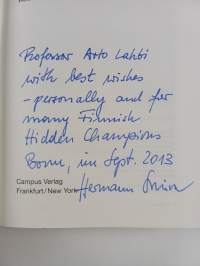 Professor Arto Lahti
with best wishes
- personally and for
many Finnish
Hidden Champions
Bonn, im Sept. 2013
Campus Verlag
Frankfurt/New York
Hermann Simon